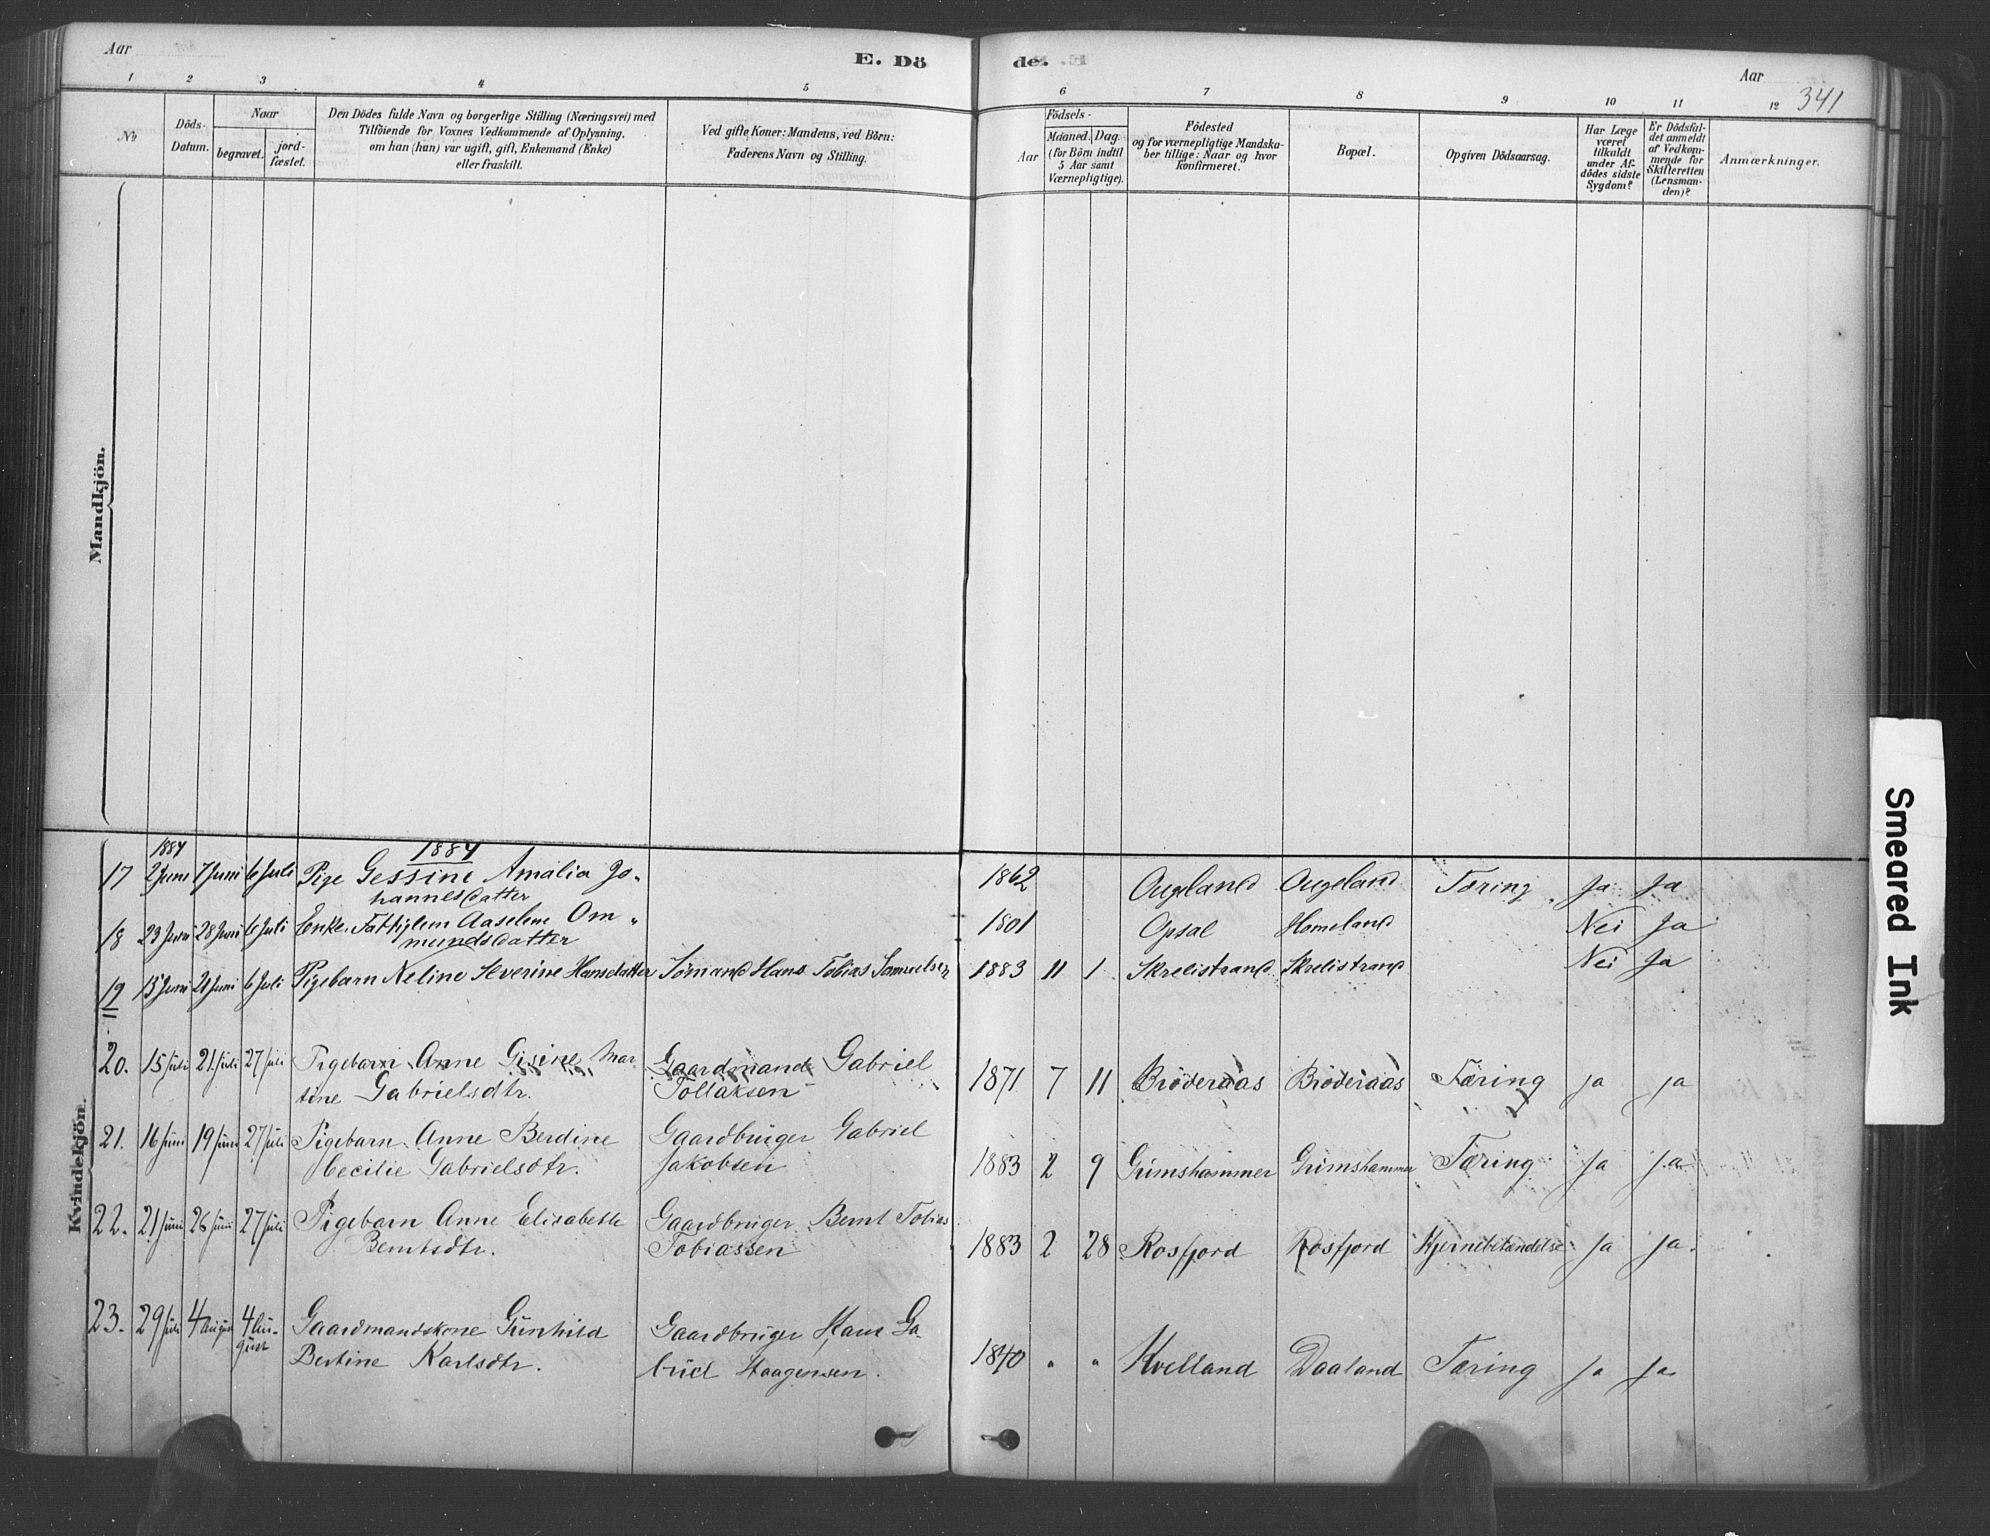 Aar
E. Dö
de.
Aar
341
1 2 3 4 5 6 7 8 9 10 11 12
No
Döds-
Datum.
Naar
begravet.
jord-
fæstet.
Den Dödes fulde Navn og borgerlige Stilling (Næringsvei) med
Tilföiende for Voxnes Vedkommende af Oplysning,
om han (hun) var ugift, gift, Enkemand (Enke)
eller fraskilt.
Ved gifte Koner: Mandens, ved Börn:
Faderens Navn og Stilling.
Födsels-
Aar
Maaned. Dag.
(for Börn indtil
5 Aar samt
Værnepligtige).
Födested
og for værnepligtige Mandska-
ber tillige: Naar og hvor
konfirmeret.
Bopæl.
Opgiven Dödsaarsag.
Har Læge
været
tilkaldt
under Af-
dödes sidste
Sygdom?
Er Dödsfal-
det anmeldt
af Vedkom-
mende for
Skifteretten
(Lensman-
den)?
Anmærkninger.
Mandkjön.
Kvindekjön.
1884 1884
17 2 Juni 7 Juni 6 Juli Pige Gessine Amalia Jo- 1862 Ougeland Ougeland Tæring Ja Ja
hannesdatter
18 23 Juni 28 Juni 6 Juli Enke Aaselene Om- 1801 Opsal Homeland Nei Ja
mundsdatter
19 15 Juni 21 Juni 6 Juli Pigebarn Neline Severine Hansdatter Sömand Hans Tobias Samuelsen 1883 11 1 Skrelistrand Skrelistrand Nei Ja
20. 15 Juli 21. Juli 27 Juli Pigebarn Anne Gisine Mar Gaardmand Gabriel 1871 7 11 Bröderaas Bröderaas Tæring ja ja
tine Gabrielsdtr. Tollaksen
21. 16 Juni 19 Juni 27 Juli Pigebarn Anne Berdine Gaardbruger Gabriel 1883 2 9 Grimshammer Grimshammer Tæring Ja Ja
Cecilie Gabrielsdtr. Jakobsen
22. 21 Juni 26 Juni 27 Juli Pigebarn Anne Elisabeth Gaardbruger Bernt Tobias 1883 2 28 Rosfjord Rosfjord Hjernebetændelse Ja Ja.
Berntsdtr. Tobiassen
23. 29 Juli 4 August 4 Au-
gust Gaardmandskone Gunhild Gaardbruger Hans Ga 1840 " " Kvelland Daaland Tæring Ja Ja
Bertine Karlsdtr. briel Haagensen.
Smeared Ink